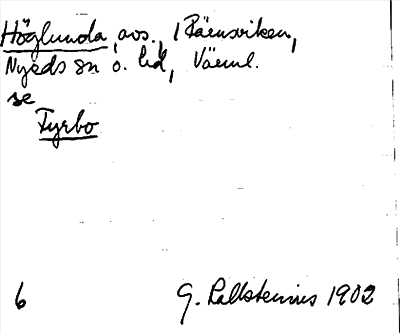 Höglunda, avs., i Räensviken,
Nyeds sn o. hd, Värml.
se
Fyrbo
6 G. Kallstenius 1902